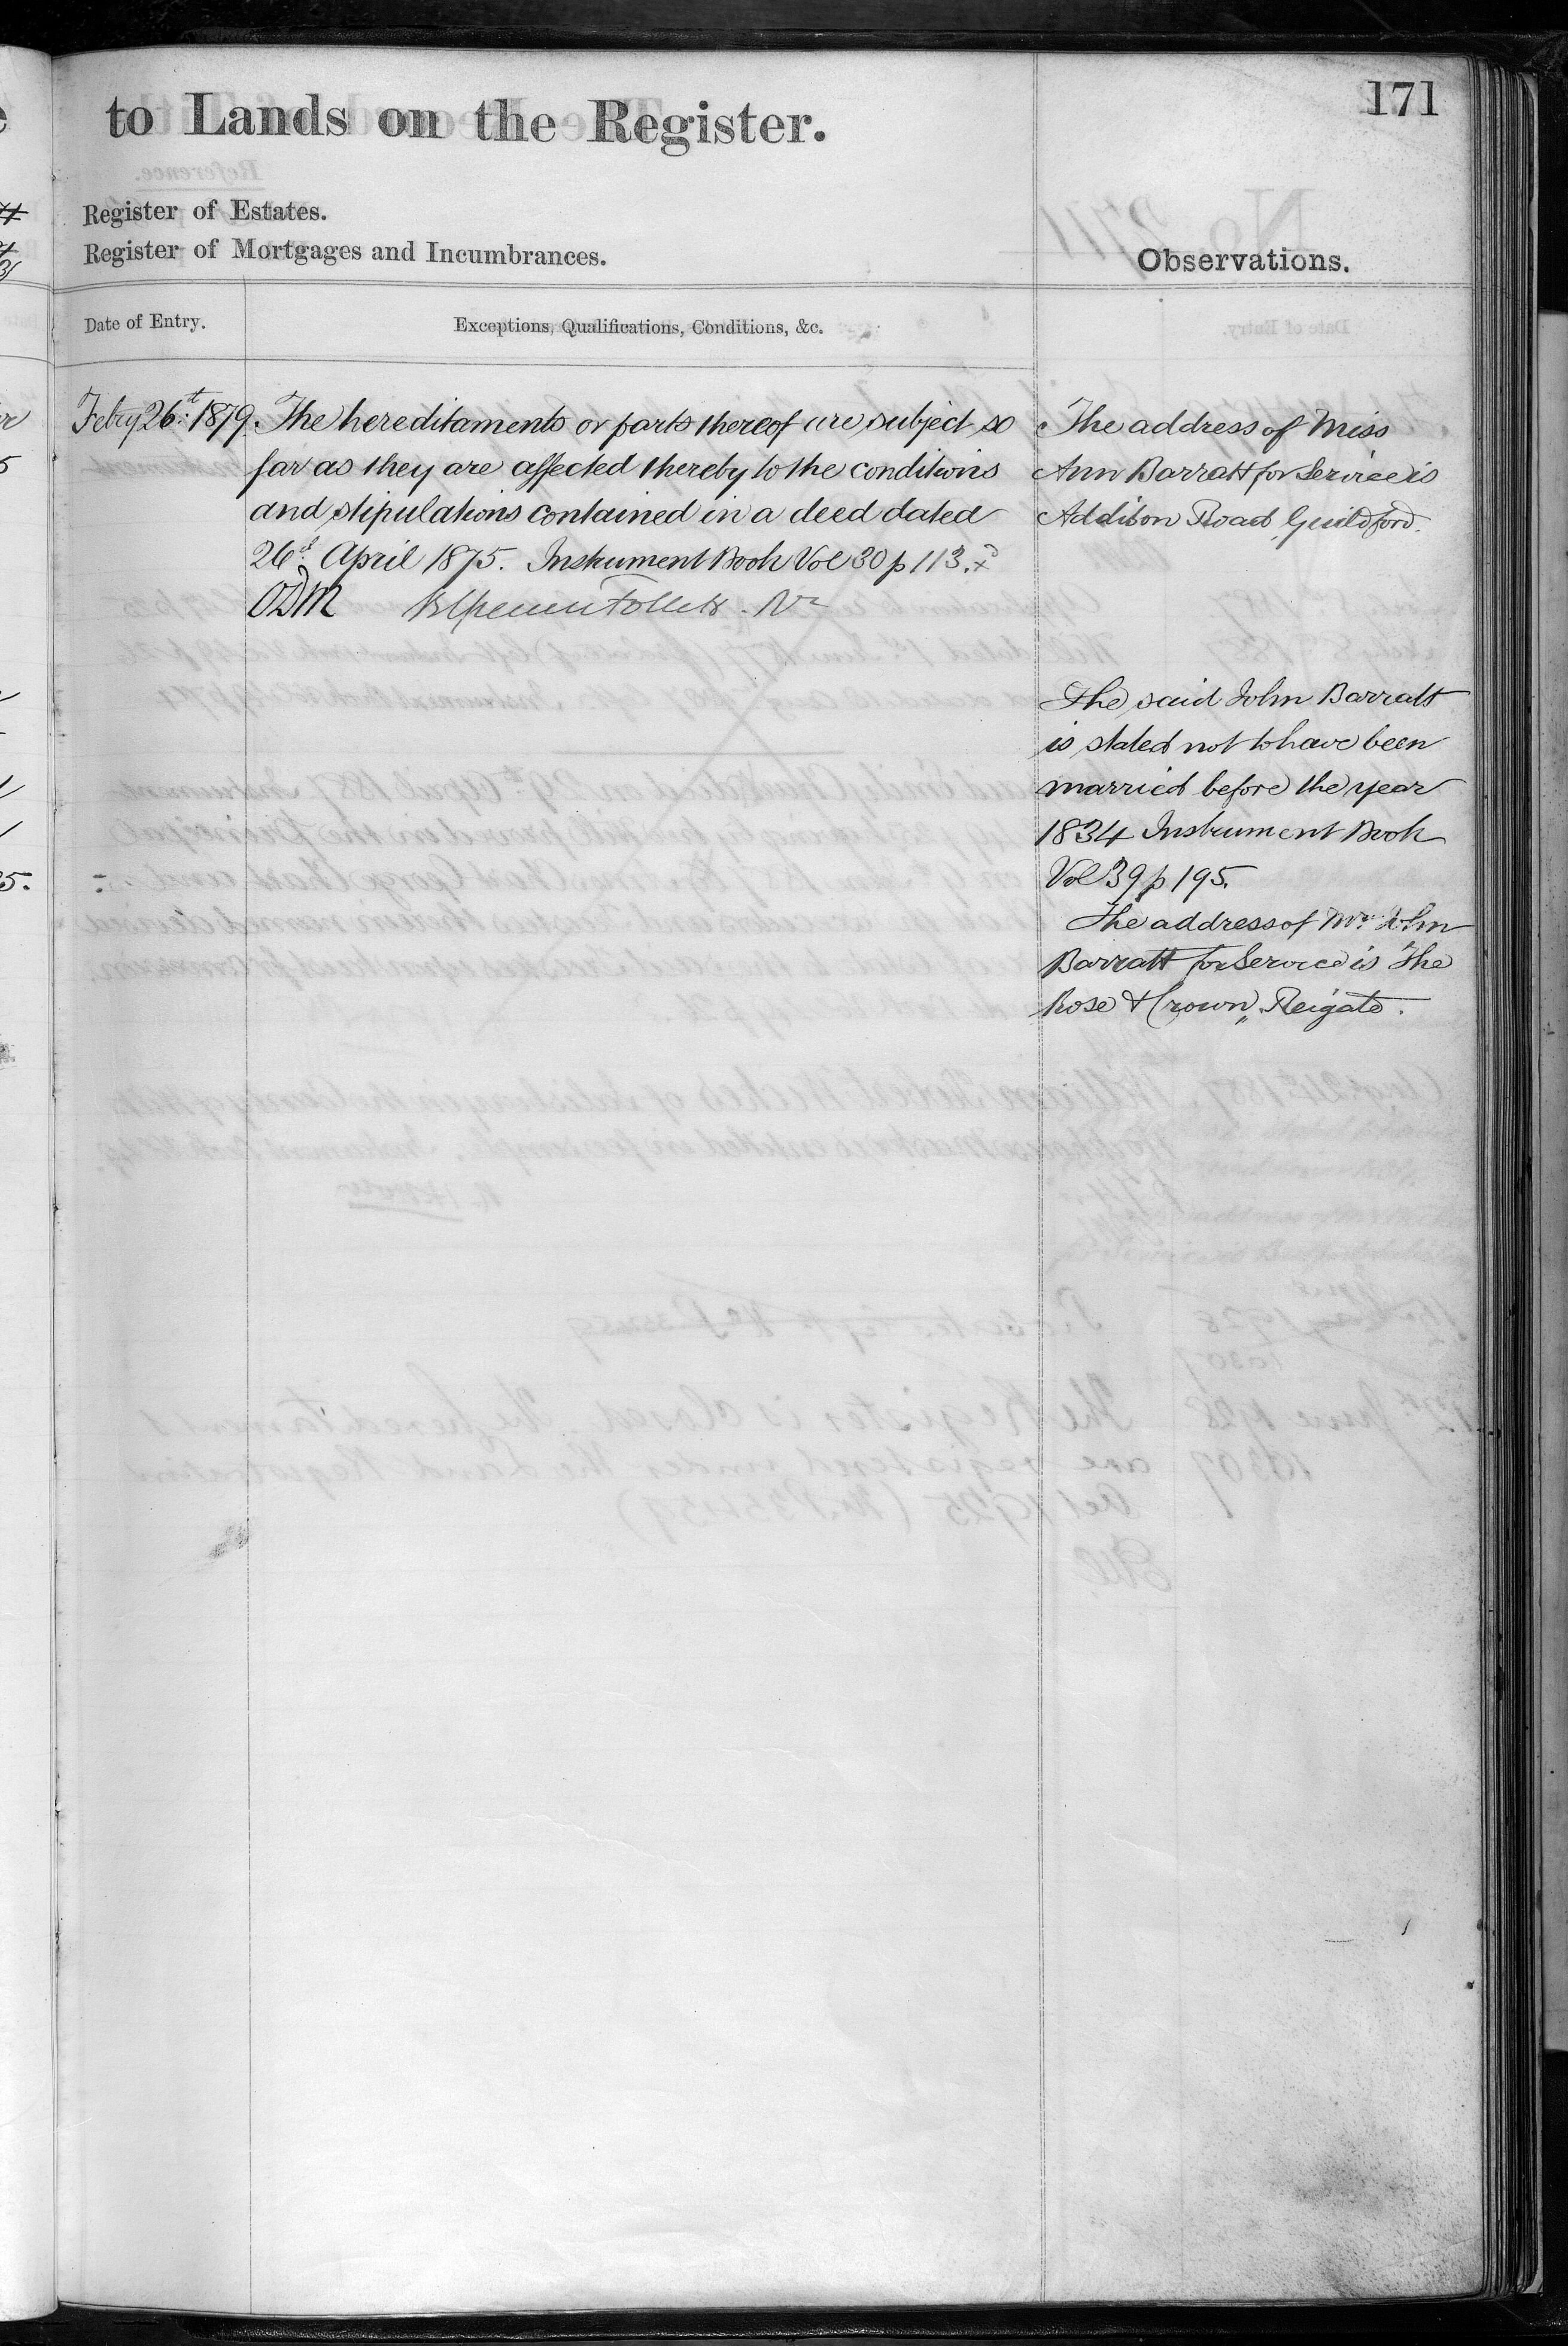 171
to Lands on the Register.
Register of Estates.
Register of Mortgages and Incumbrances.
Observations.
Date of Entry.
Exceptions, Qualifications, Conditions, &c.
Febry 26th: 1879. The hereditaments or parts thereof are subject so
far as they are affected thereby to the conditions
and stipulations contained in a deed dated
26th April 1875. Instrument Book Vol 30 p 113.
ODM
The address of Miss
Ann Barratt for Service is
Addison Road, Guildford.
The said John Barratt
is stated not to have been
married before the year
1834 Instrument Book
Vol 39 p 195.
The address of Mr. John
Barratt for Service is The
Rose & Crown, Reigate.